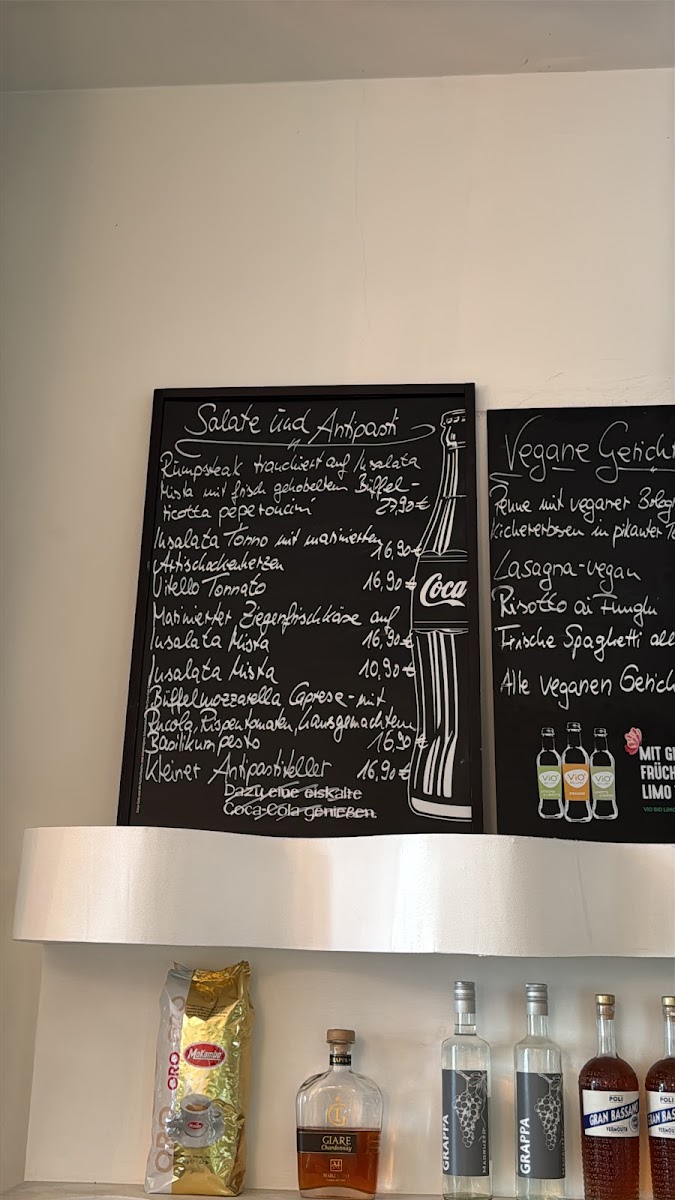 Salate und Antipasti
Rumpsteak tranchiert auf Insalata
Mista mit frisch gehobeltem Büffel-
ricotta peperoncini 27,90€
Insalata Tonno mit marinierten
Artischockenherzen 16,90€
Vitello Tonnato 16,90€
Marinierter Ziegenfrischkäse auf
Insalata Mista 16,90€
Insalata Mista 10,90€
Büffelmozzarella Caprese mit
Rucola, Rispentomaten, hausgemachtem
Basilikumpesto 16,90€
Kleiner Antipastiteller 16,90€
Dazu eine eiskalte
Coca-Cola genießen.
Coca
Vegane Gerich
Penne mit veganer Bologn
Kichererbsen in pikanter
Lasagna-vegan
Risotto ai Funghi
Frische Spaghetti
Alle veganen Gerich
ViO
ViO
ViO
MIT
FRÜCH
LIMO
VIO BIO LIMO
ORO
ORO
ORO
Mokambo
GIARE
Chardonnay
GRAPPA
GRAPPA
POLI
GRAN BASSANO
VERMOUTH
POLI
GRAN BASSA
VERMOUTH